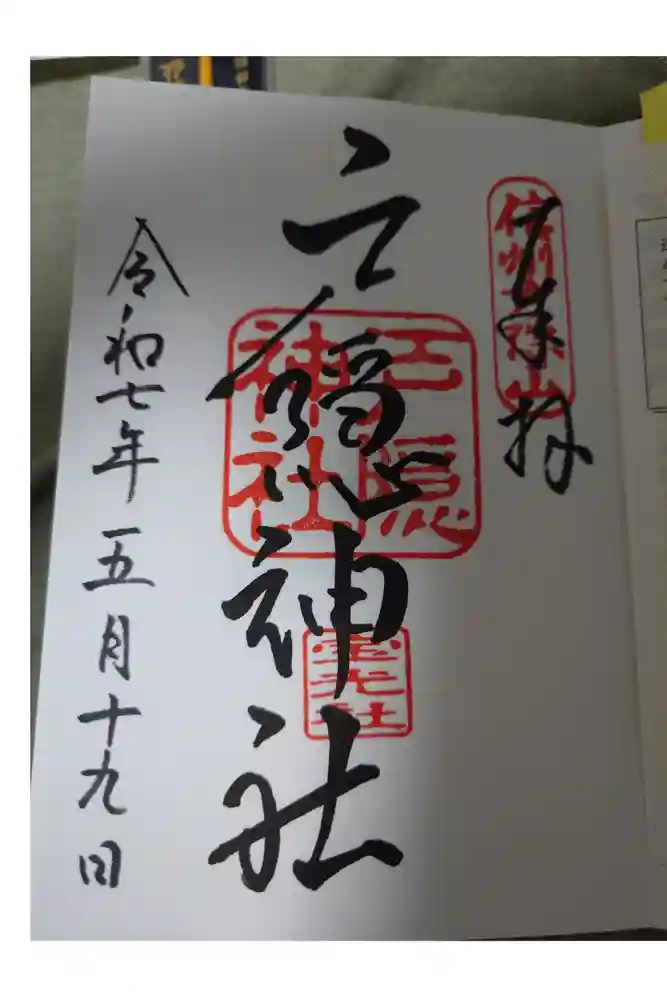 信州戸隠山
奉拝
戸隠神社
戸隠
神社
宝光社
令和七年五月十九日